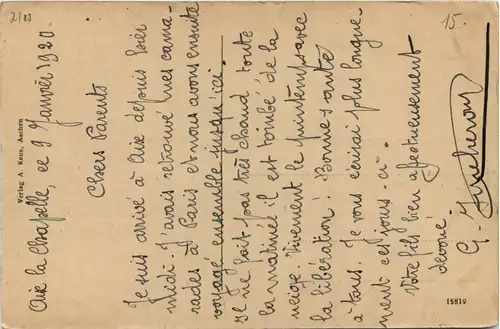 7/00
15.-
Aix la Chapelle, ce 9 Janvier 1920
Chers Parents
Je suis arrivé à Aix depuis hier
midi. J'avais retrouvé mes cama-
rades à Paris et nous avons ensuite
voyagé ensemble jusqu'ici.
Il ne fait pas très chaud toute
la matinée il est tombé de la
neige. Vivement le printemps avec
la libération! Bonne santé
à tous. Je vous écrirai plus longue-
ment ces jours-ci.
Votre fils bien affectueusement
dévoué.
G.
Verlag A. Keus, Aachen
15819